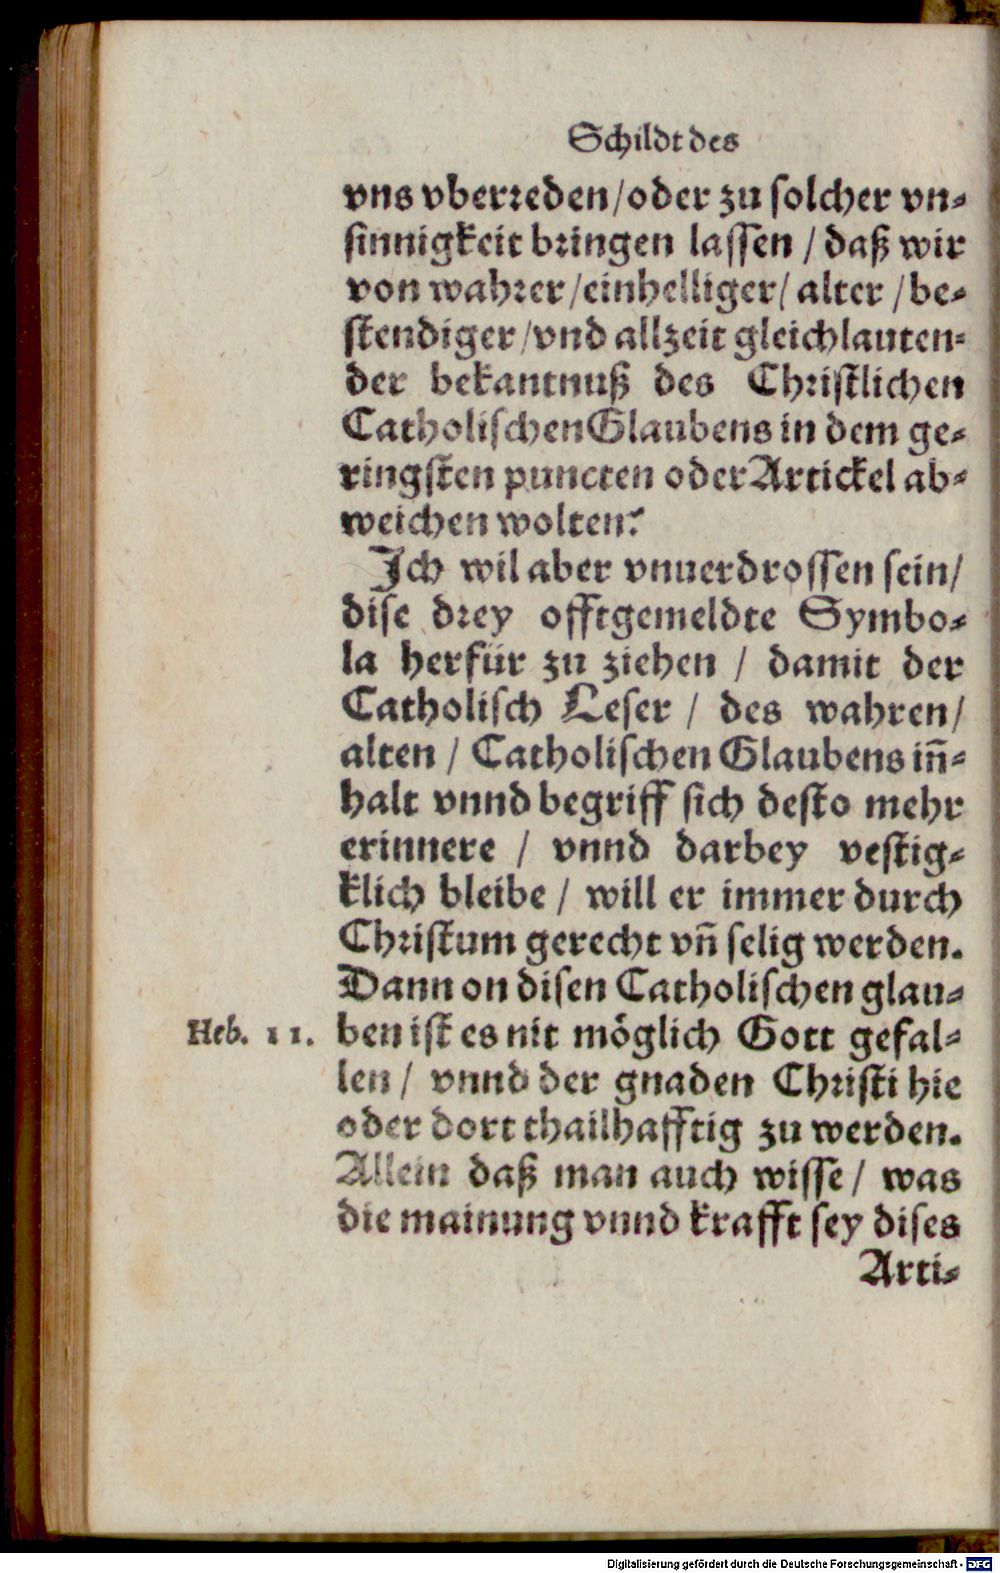 Schildt des
vns vberreden/oder zu solcher vn-
sinnigkeit bringen lassen / daß wir
von wahrer/einhelliger/ alter / be-
stendiger/vnd allzeit gleichlauten-
der bekantnuß des Christlichen
Catholischen Glaubens in dem ge-
ringsten puncten oder Artickel ab-
weichen wolten?
Ich wil aber vnuerdrossen sein/
dise drey offtgemeldte Symbo-
la herfür zu ziehen / damit der
Catholisch Leser / des wahren/
alten / Catholischen Glaubens iñ-
halt vnnd begriff sich desto mehr
erinnere / vnnd darbey vestig-
klich bleibe / will er immer durch
Christum gerecht vñ selig werden.
Dann on disen Catholischen glau-
Heb. 11. ben ist es nit möglich Gott gefal-
len / vnnd der gnaden Christi hie
oder dort thailhafftig zu werden.
Allein daß man auch wisse / was
die mainung vnnd krafft sey dises
Arti-
Digitalisierung gefördert durch die Deutsche Forschungsgemeinschaft - DFG